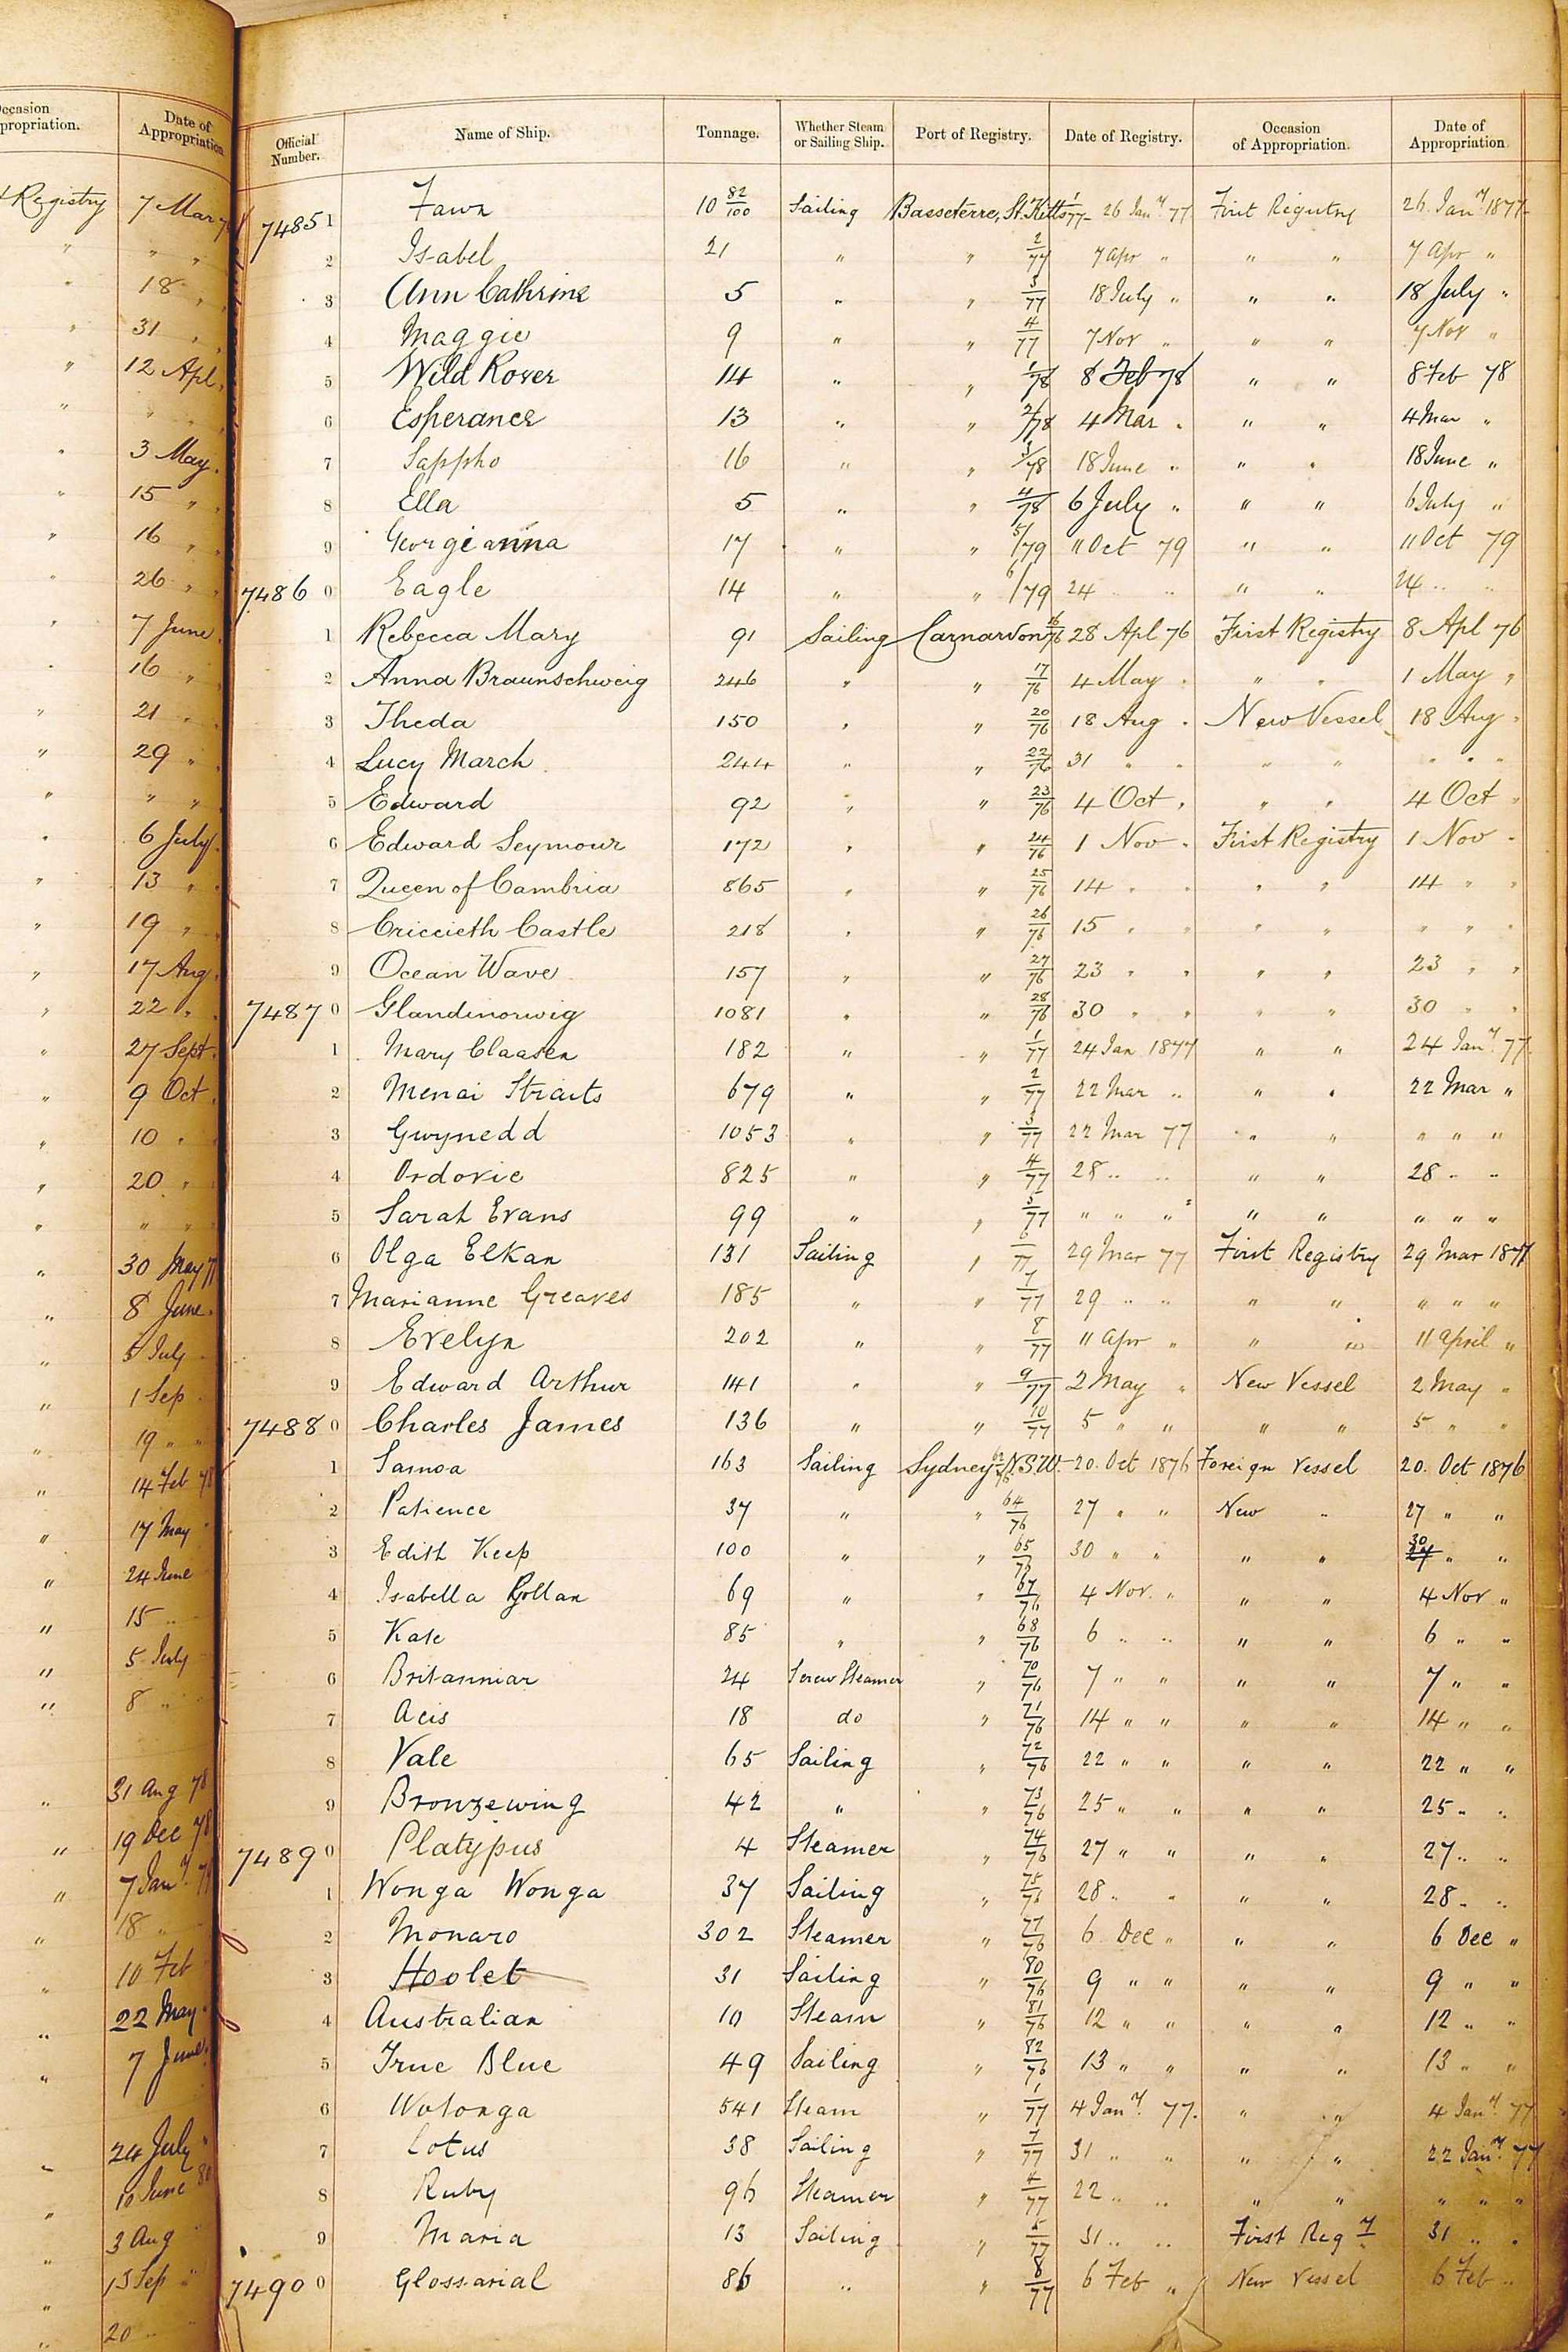 Occasion
propriation.
Date of
Appropriation
Registry 7 Mar
" " "
" 18 "
" 31 "
" 12 Apl "
" " "
" 3 May "
" 15 "
" 16 "
" 26 "
" 7 June "
" 16 "
" 21 "
" 29 "
" " "
" 6 July "
" 13 "
" 19 "
" 17 Aug "
" 22 "
" 27 Sept "
" 9 Oct
" 10 "
" 20 "
" " "
" 30 May 77
" 8 June "
" 5 July
" 1 Sep
" 19 " "
" 14 Feb 78
" 17 May "
" 24 June
" 15 "
" 5 July
" 8 "
" 31 Aug 78
" 19 Dec 78
" 7 Jany 79
" 18 "
" 10 Feb
" 22 May "
" 7 June
" 24 July "
" 10 June 80
" 3 Aug "
" 13 Sep "
" 20 "
Official Number. Name of Ship. Tonnage. Whether Steam or Sailing Ship. Port of Registry. Date of Registry. Occasion of Appropriation. Date of Appropriation
7485 1 Fawn 10 82/100 Sailing Basseterre, St. Kitts 1/77 26 Jany 77 First Registry 26 Jany 1877
2 Isabel 21 " " 2/77 7 Apr " " " 7 Apr "
3 Ann Cathrine 5 " " 3/77 18 July " " " 18 July "
4 Maggie 9 " " 4/77 7 Nov " " " 7 Nov "
5 Wild Rover 14 " " 1/78 8 Feb 78 " " 8 Feb 78
6 Esperance 13 " " 2/78 4 Mar " " " 4 Mar "
7 Sappho 16 " " 3/78 18 June " " " 18 June "
8 Ella 5 " " 4/78 6 July " " " 6 July "
9 Georgeanna 17 " " 5/79 11 Oct 79 " " 11 Oct 79
7486 0 Eagle 14 " " 6/79 24 " " " " 24 " "
1 Rebecca Mary 91 Sailing Carnarvon 16/76 28 Apl 76 First Registry 8 Apl 76
2 Anna Braunschweig 246 " " 17/76 4 May " " " 1 May "
3 Theda 150 " " 20/76 18 Aug " New Vessel 18 Aug "
4 Lucy March 244 " " 22/76 31 " " " " " " "
5 Edward 92 " " 23/76 4 Oct " " " 4 Oct "
6 Edward Seymour 172 " " 24/76 1 Nov " First Registry 1 Nov "
7 Queen of Cambria 865 " " 25/76 14 " " " " 14 " "
8 Criccieth Castle 218 " " 26/76 15 " " " " " " "
9 Ocean Wave 157 " " 27/76 23 " " " " 23 " "
7487 0 Glandinorwig 1081 " " 28/76 30 " " " " 30 " "
1 Mary Claasen 182 " " 1/77 24 Jan 1877 " " 24 Jany 77
2 Menai Straits 679 " " 2/77 22 Mar " " " 22 Mar "
3 Gwynedd 1053 " " 3/77 22 Mar 77 " " " " "
4 Ordovic 825 " " 4/77 28 " " " " 28 " "
5 Sarah Evans 99 " " 5/77 " " " " " " " "
6 Olga Elkan 131 Sailing " 6/77 29 Mar 77 First Registry 29 Mar 1877
7 Marianne Greaves 185 " " 7/77 29 " " " " " " "
8 Evelyn 202 " " 8/77 11 Apr " " " 11 April "
9 Edward Arthur 141 " " 9/77 2 May " New Vessel 2 May "
7488 0 Charles James 136 " " 10/77 5 " " " " 5 " "
1 Samoa 163 Sailing Sydney N.S.W. 62/76 20. Oct 1876 Foreign Vessel 20. Oct 1876
2 Patience 37 " " 64/76 27 " " New " 27 " "
3 Edith Keep 100 " " 65/76 30 " " " " 30 27 " "
4 Isabella Gollan 69 " " 67/76 4 Nov. " " " 4 Nov "
5 Kate 85 " " 68/76 6 " " " " 6 " "
6 Britannia 24 Screw Steamer " 70/76 7 " " " " 7 " "
7 Acis 18 do " 71/76 14 " " " " 14 " "
8 Vale 65 Sailing " 72/76 22 " " " " 22 " "
9 Bronzewing 42 " " 73/76 25 " " " " 25 " "
7489 0 Platypus 4 Steamer " 74/76 27 " " " " 27 " "
1 Wonga Wonga 37 Sailing " 75/76 28 " " " " 28 " "
2 Monaro 302 Steamer " 77/76 6 Dec " " " 6 Dec "
3 Hoolet 31 Sailing " 80/76 9 " " " " 9 " "
4 Australian 10 Steam " 81/76 12 " " " " 12 " "
5 True Blue 49 Sailing " 82/76 13 " " " " 13 " "
6 Wotonga 541 Steam " 1/77 4 Jany. 77. " " 4 Jany. 77
7 Lotus 38 Sailing " 7/77 31 " " " " 22 Jany. 77
8 Ruby 96 Steamer " 4/77 22 " " " " " " "
9 Maria 13 Sailing " 5/77 31 " " First Regy 31 " "
7490 0 Glossarial 86 " " 8/77 6 Feb " New Vessel 6 Feb "